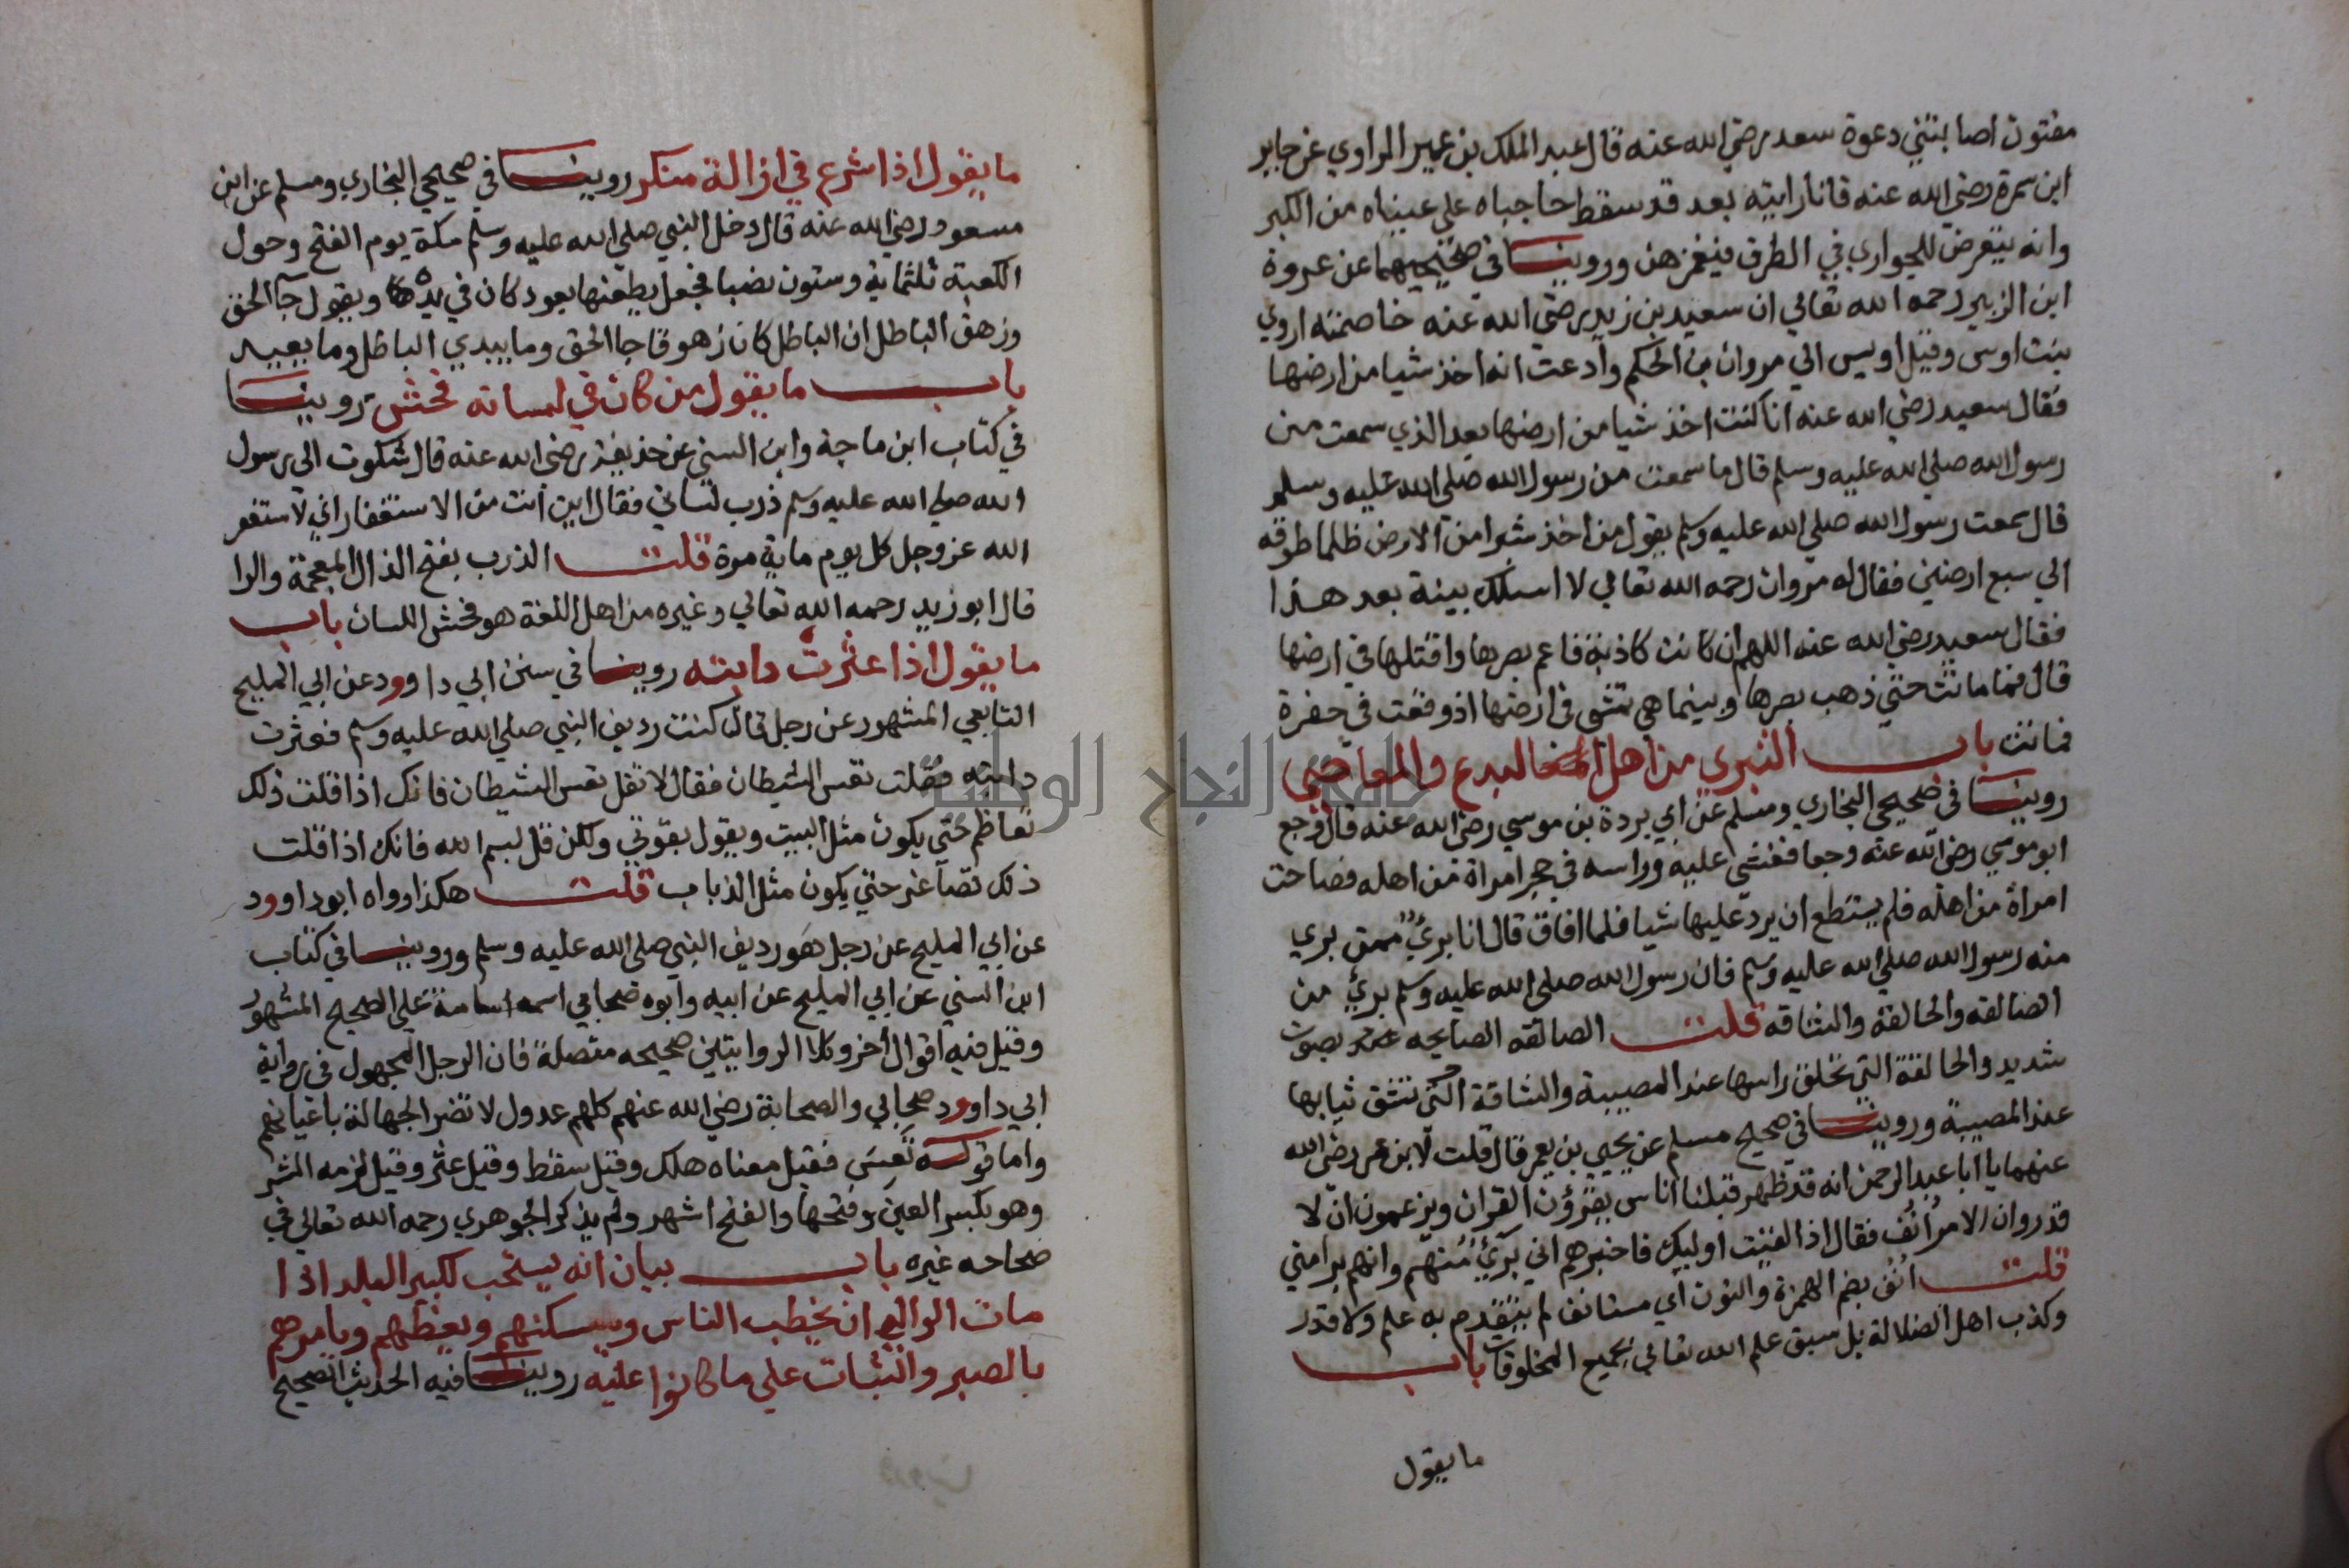 مفتون اصابتني دعوة سعد رضي الله عنه قال عبد الملك بن عمير الراوي عن جابر
ابن سمرة رضي الله عنه فانا رايته بعد قد سقط حاجباه علي عيناه من الكبر
وانه يتعرض للجواري في الطرق فيغمزهن وروينا في صحيحيهما عن عروة
ابن الزبير رحمه الله تعالي ان سعيد بن زيد رضي الله عنه خاصمته اروي
بنت اوس وقيل اويس الي مروان بن الحكم وادعت انه اخذ شيا من ارضها
فقال سعيد رضي الله عنه انا كنت اخذ شيا من ارضها بعد الذي سمعت من
رسول الله صلي الله عليه وسلم قال ما سمعت من رسول الله صلي الله عليه وسلم
قال سمعت رسول الله صلي الله عليه وسلم يقول من اخذ شبرا من الارض ظلما طوقه
الي سبع ارضين فقال له مروان رحمه الله تعالي لا اسلك بينة بعد هذا
فقال سعيد رضي الله عنه اللهم ان كانت كاذبة فاعم بصرها واقتلها في ارضها
قال فما ماتت حتي ذهب بصرها وبينما هي تمشي في ارضها اذ وقعت في حفرة
فماتت باب التبري من اهل البدع والمعاصي
روينا في صحيحي البخاري ومسلم عن ابي بردة بن موسي رضي الله عنه قال وجع
ابو موسي رضي الله عنه وجعا فغشي عليه وراسه في حجر امراة من اهله فصاحت
امراة من اهله فلم يستطع ان يرد عليها شيا فلما افاق قال انا بريٌ ممن بري
منه رسول الله صلي الله عليه وسلم فان رسول الله صلي الله عليه وسلم بريٌ من
الصالقه والحالقة والشاقه قلت الصالقه الصايحه بصوت
شديد والحالقة التي تحلق راسها عند المصيبة والشاقة التي تشق ثيابها
عند المصيبة وروينا في صحيح مسلم عن يحيي بن يعمر قال قلت لابن عمر رضي الله
عنهما يا ابا عبد الرحمن انه قد ظهر قبلنا اناس يقرؤن القران ويزعمون ان لا
قدر وان الامر انف فقال اذا لقيت اوليك فاخبرهم اني بريٌ منهم وانهم برا مني
قلت انف بضم الهمزة والنون اي مستانف لم يتقدم به علم ولا قدر
وكذب اهل الضلالة بل سبق علم الله تعالي بجميع المخلوقات باب
ما يقول
ما يقول اذا شرع في ازالة منكر روينا في صحيحي البخاري ومسلم عن ابن
مسعود رضي الله عنه قال دخل النبي صلي الله عليه وسلم مكة يوم الفتح وحول
الكعبة ثلثماية وستون نصبا فجعل يطعنها بعود كان في يده ويقول جآ الحق
وزهق الباطل ان الباطل كان زهوقا جا الحق وما يبدي الباطل وما يعيد
باب ما يقول من كان في لسانه فحش روينا
في كتاب ابن ماجة وابن السني عن حذيفة رضي الله عنه قال شكوت الي رسول
الله صلي الله عليه وسلم ذرب لساني فقال اين انت من الاستغفار اني لاستغفر
الله عز وجل كل يوم ماية مرة قلت الذرب بفتح الذال المعجمة والرا
قال ابو زيد رحمه الله تعالي وغيره من اهل اللغة هو فحش اللسان باب
ما يقول اذا عثرت دابته روينا في سنن ابي داوود عن ابي المليح
التابعي المشهور عن رجل قال كنت رديف النبي صلي الله عليه وسلم فعثرت
دابته فقلت تعس الشيطان فقال لا تقل تعس الشيطان فانك اذا قلت ذلك
تعاظم حتي يكون مثل البيت ويقول بقوتي ولكن قل بسم الله فانك اذا قلت
ذلك تصاغر حتي يكون مثل الذباب قلت هكذا رواه ابو داوود
عن ابي المليح عن رجل هو رديف النبي صلي الله عليه وسلم وروينا في كتاب
ابن السني عن ابي المليح عن ابيه وابوه صحابي اسمه اسامة علي الصحيح المشهور
وقيل فيه اقوال أخر وكلا الروايتين صحيحه متصلة فان الرجل المجهول في رواية
ابي داوود صحابي والصحابة رضي الله عنهم كلهم عدول لا تضر الجهالة باعيانهم
واما قوله تَعِسَ فقيل معناه هلك وقيل سقط وقيل عثر وقيل لزمه الشر
وهو بكسر العين وفتحها والفتح اشهر ولم يذكر الجوهري رحمه الله تعالي في
صحاحه غيره باب بيان انه يستحب لكبير البلد اذا
مات الوالي ان يخطب الناس ويسكنهم ويعظهم ويامرهم
بالصبر والثبات علي ما كانوا عليه روينا فيه الحديث الصحيح
جامعة النجاح الوطنية